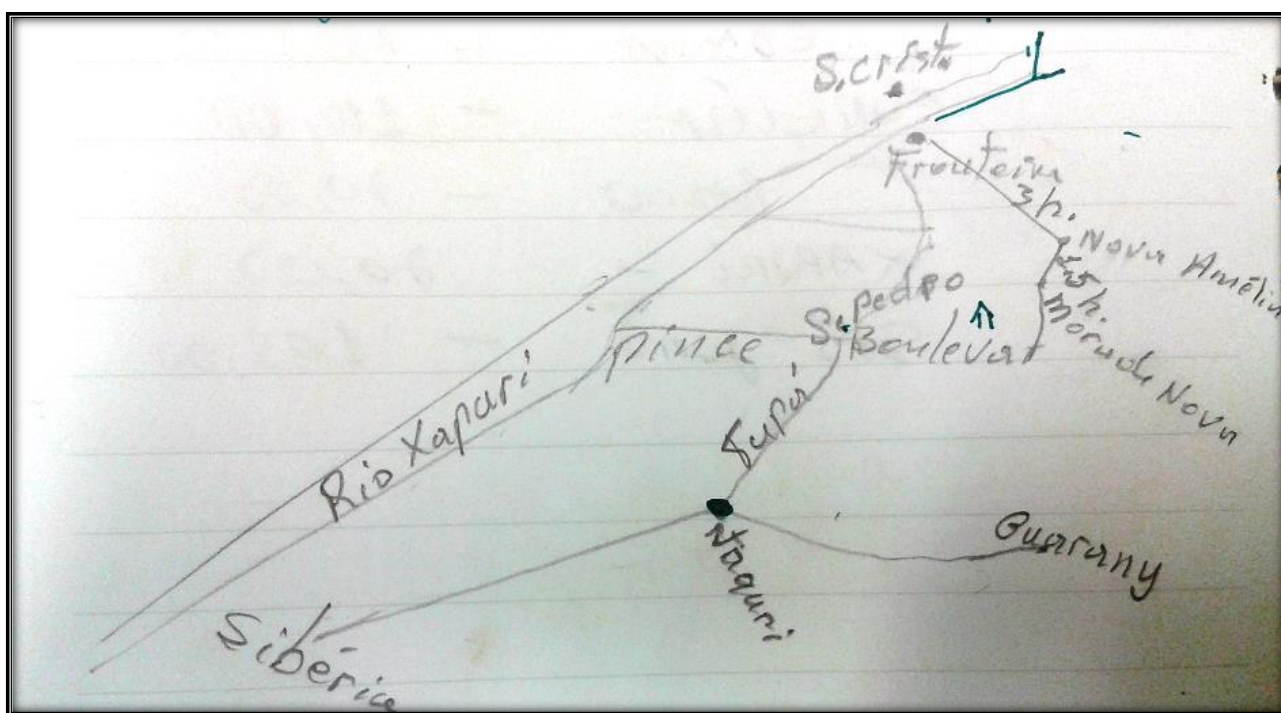 S. Cristo
Fronteira
3 h.
Nova Amélia
h.
Morada Nova
S. Pedro
Boulevar
pince
Tupá
Rio Xapuri
Itaquri
Guarany
Sibérica